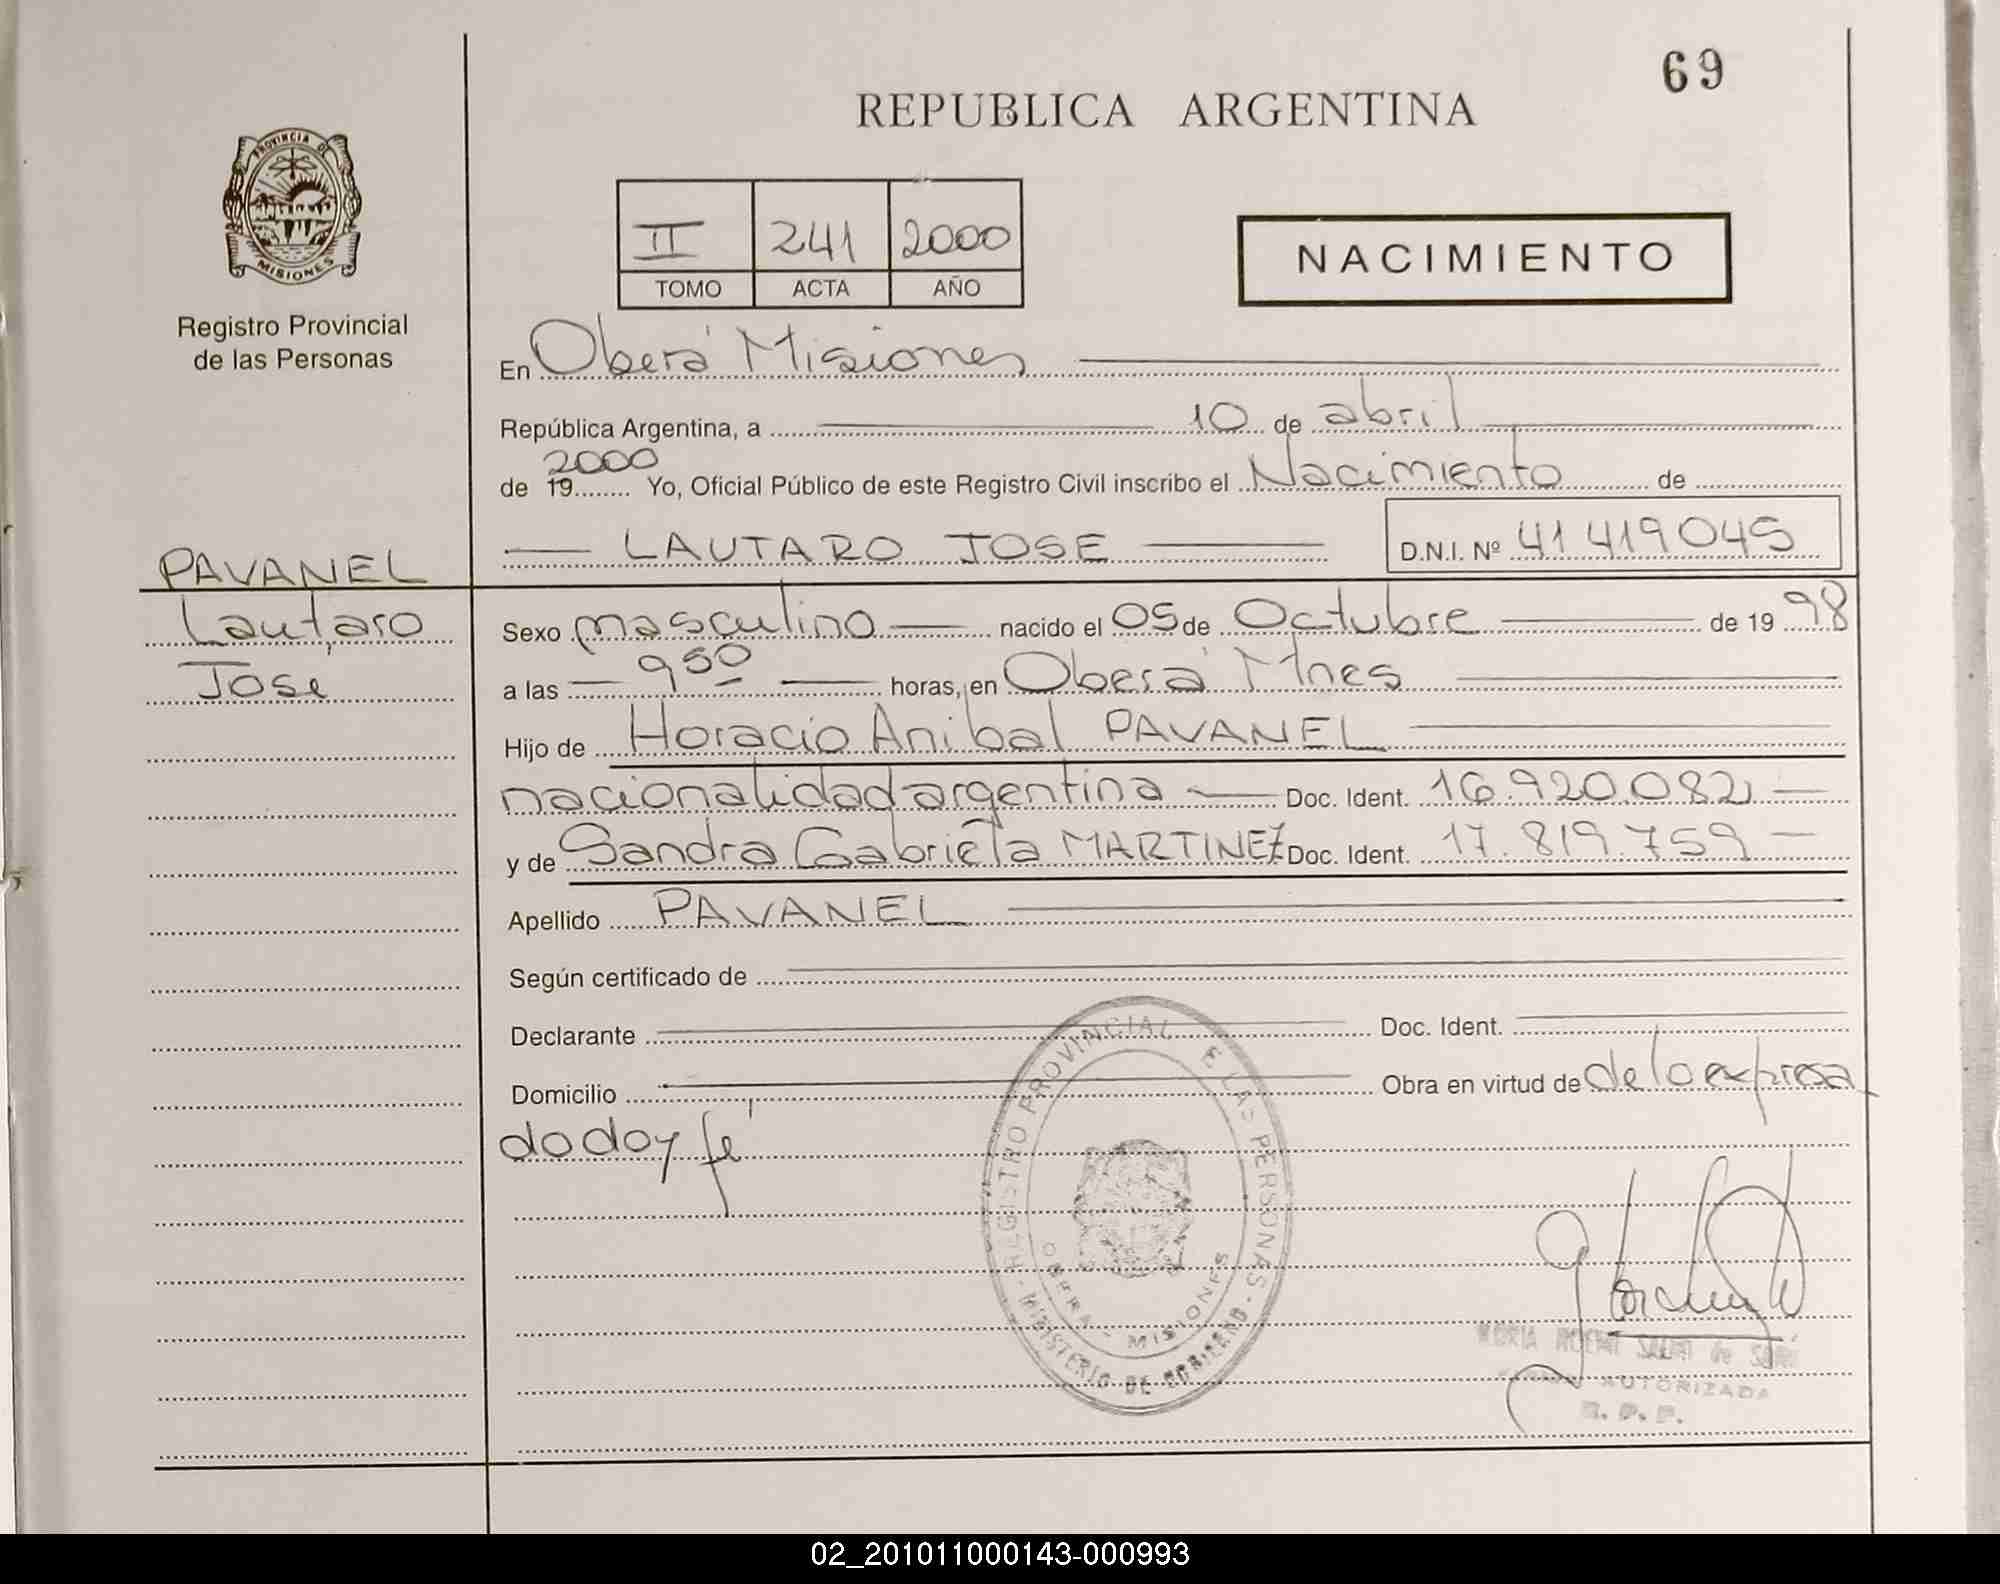 69
REPUBLICA ARGENTINA
PROVINCIA DE
MISIONES
Registro Provincial
de las Personas
II 241 2000
TOMO ACTA AÑO
NACIMIENTO
En Oberá Misiones
República Argentina, a 10 de abril
2000
de 19........ Yo, Oficial Público de este Registro Civil inscribo el Nacimiento de
LAUTARO JOSE D.N.I. Nº 41 419 045
PAVANEL
Lautaro
José
Sexo masculino nacido el 05 de Octubre de 19 98
a las 9 50 horas, en Oberá Mnes
Hijo de Horacio Anibal PAVANEL
nacionalidad argentina Doc. Ident. 16.920.082
y de Sandra Gabriela MARTINEZ Doc. Ident. 17.819.759
Apellido PAVANEL
Según certificado de
Declarante Doc. Ident.
Domicilio Obra en virtud de de lo expresa
do doy fé
REGISTRO PROVINCIAL E LAS PERSONAS
OBERA - MISIONES
MINISTERIO DE GOBIERNO
AUTORIZADA
R. P. P.
02_201011000143-000993